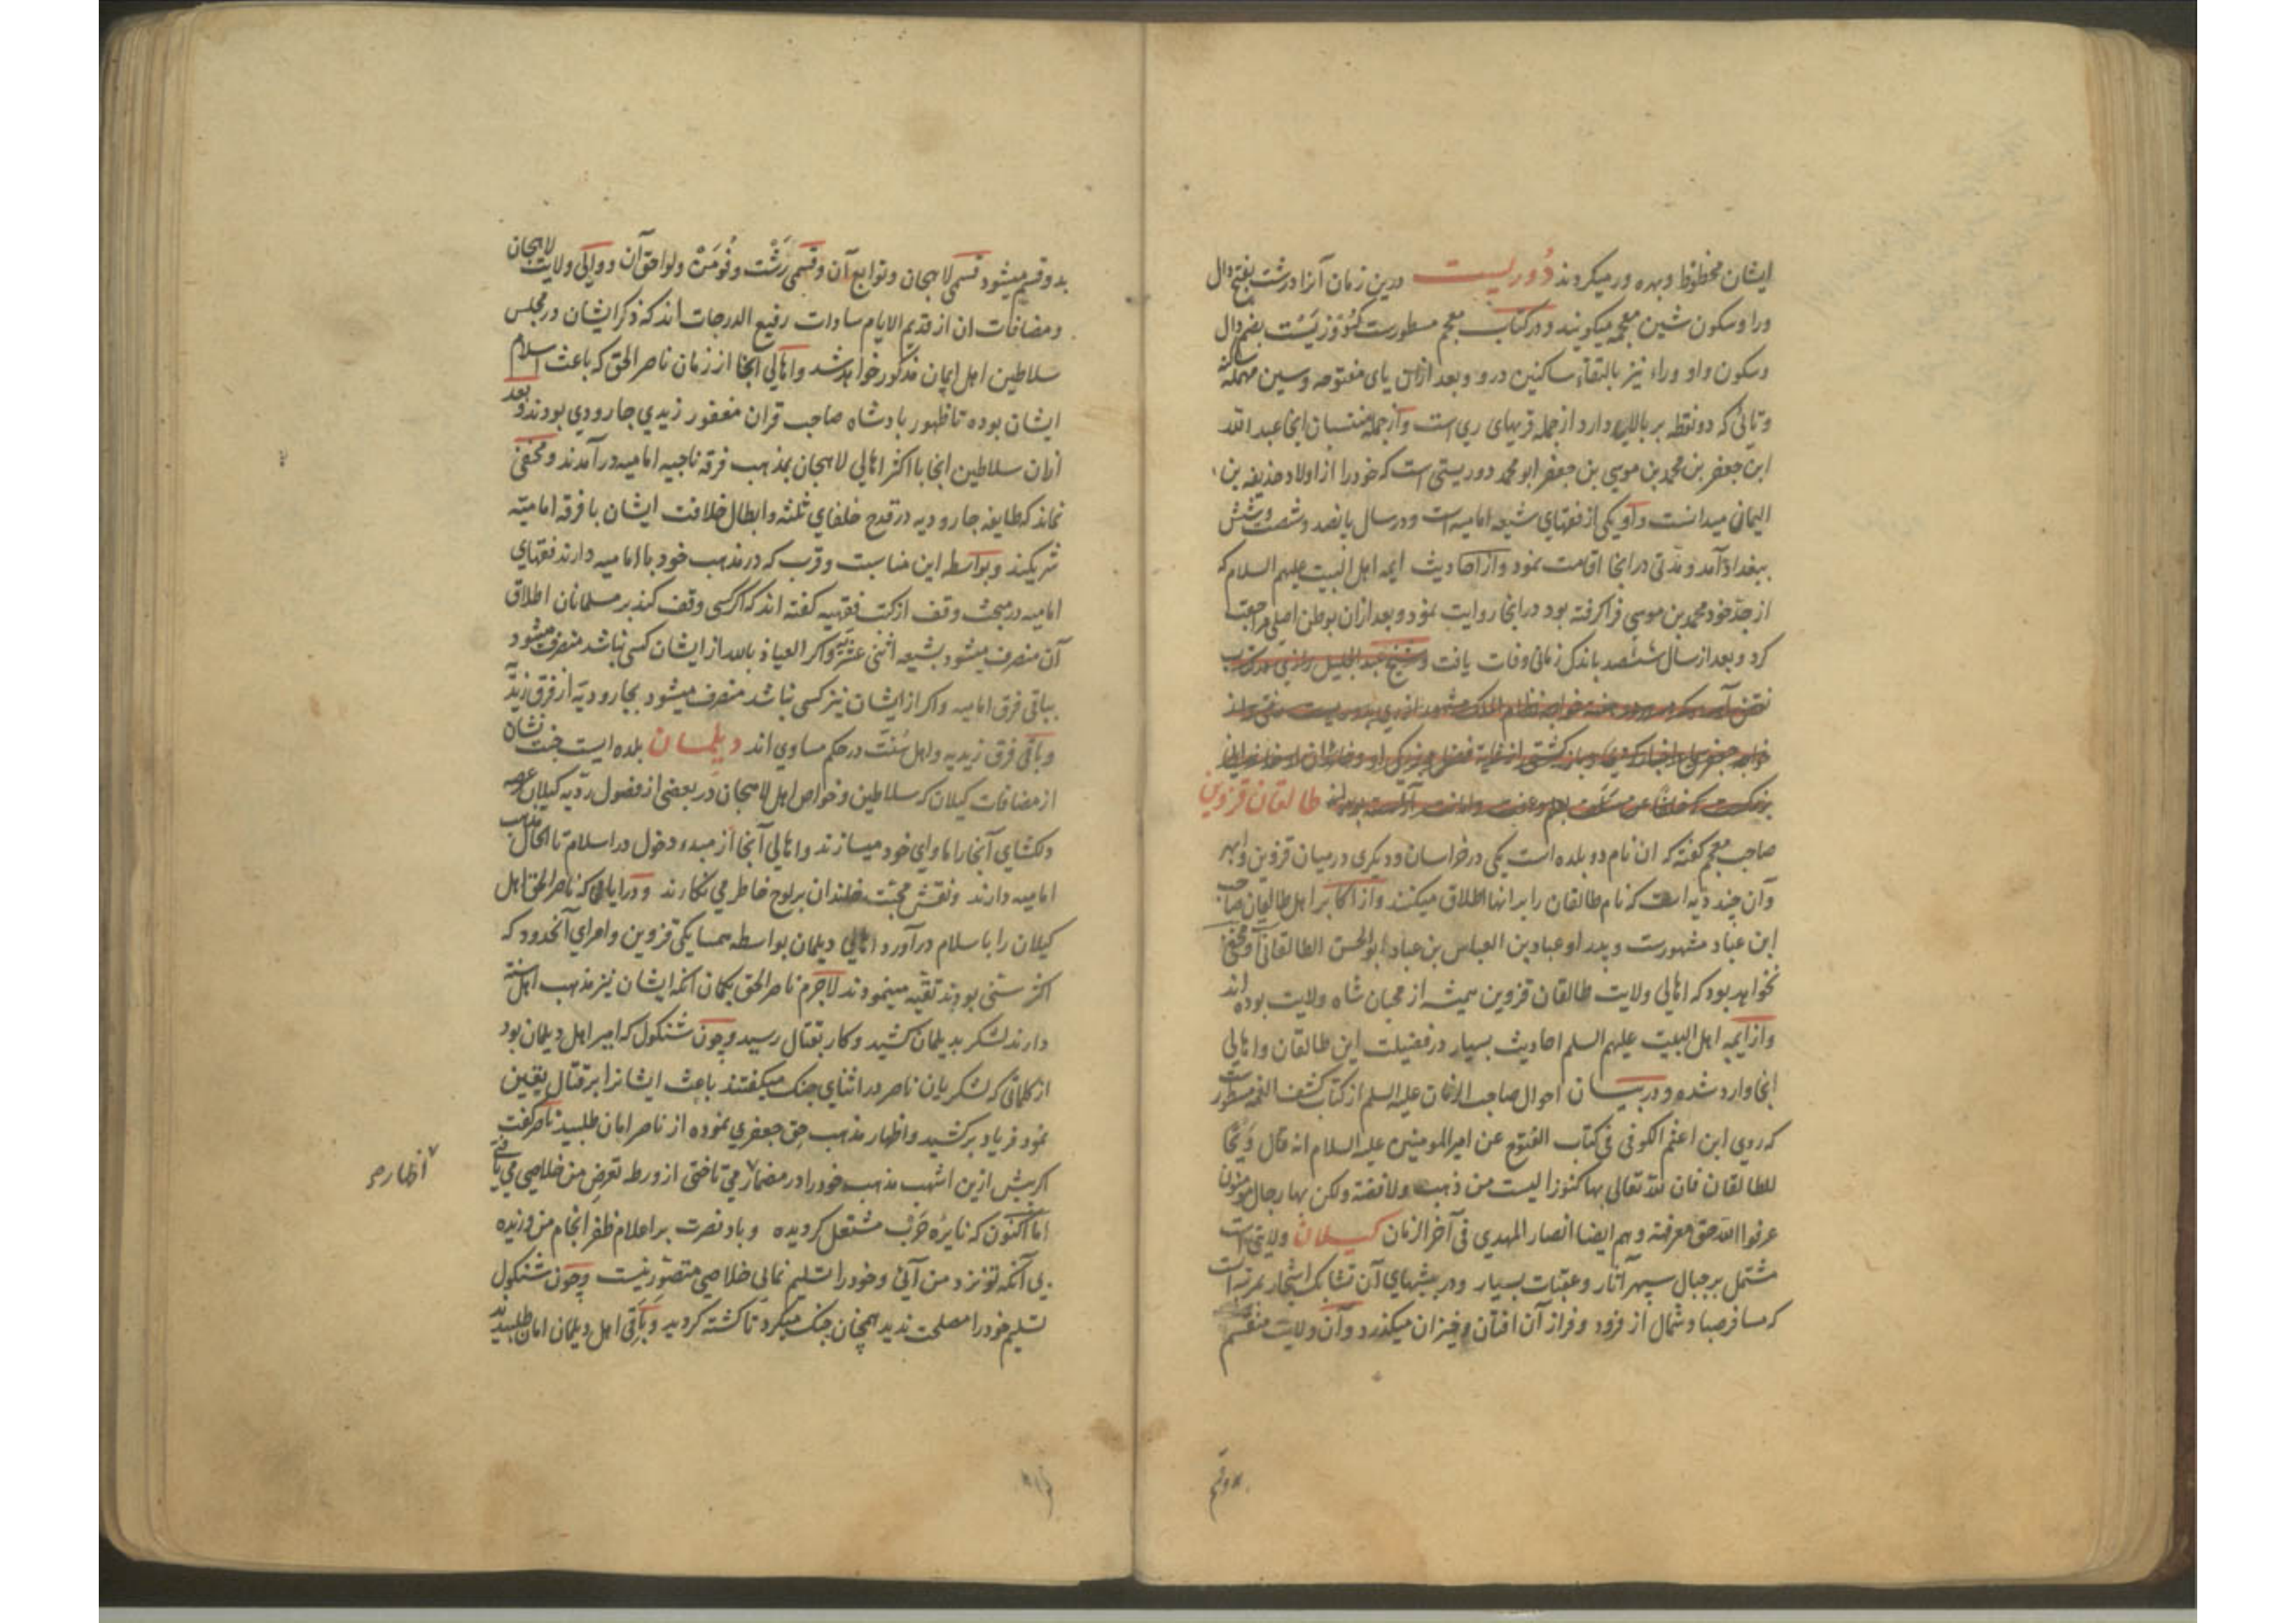 ایشان محظوظ و بهره ور میکردند دُوریست درین زمان آنرا درشت بفتح دال
و را و سکون شین معجمه میکویند و در کتاب معجم مسطورست که دُوریَسْت بضم دال
و سکون واو و راء نیز بالتقاء ساکنین درو و بعد ازان یای مفتوحه و سین مهمله
و تائی که دو نقطه بر بالا دارد از جمله قریهای ری است و از جمله منتسبان انجا عبد الله
ابن جعفر بن محمد بن موسی بن جعفر ابو محمد دوریستی است که خود را از اولاد حذیفه بن
الیمان میدانست و او یکی از فقهای شیعه امامیه است و در سال پانصد و شصت و شش
ببغداد آمد و مدتی در انجا اقامت نمود و از احادیث ایمه اهل البیت علیهم السلام که
از جد خود محمد بن موسی فرا کرفته بود در انجا روایت نمود و بعد ازان بوطن اصلی مراجعت
کرد و بعد از سال ششصد باندک زمانی وفات یافت و شیخ عبد الجلیل رازی در کتاب
نقض آورده که خواجه نظام الملک
خواجه جعفر
طالقان قزوین
صاحب معجم کفته که ان نام دو بلده است یکی در خراسان و دیکری در میان قزوین و ابهر
و آن چند دیه است که نام طالقان را بر انها اطلاق میکنند و از اکابر اهل طالقان صاحب
ابن عباد مشهورست و پدر او عباد بن العباس بن عباد ابو الحسن الطالقانی و مخفی
نخواهد بود که اهالی ولایت طالقان قزوین همیشه از محبان شاه ولایت بوده اند
و از ایمه اهل البیت علیهم السلم احادیث بسیار در فضیلت این طالقان و اهالی
انجا وارد شده و در بیان احوال صاحب الزمان علیه السلم از کتاب کشف الغمه مسطورست
که روی ابن اعثم الکوفی فی کتاب الفتوح عن امیر المومنین علیه السلام انه قال وَیْحًا
للطالقان فان لله تعالی بها کنوزا لیست من ذهب ولا فضة ولکن بها رجال مومنون
عرفوا الله حق معرفته و هم ایضا انصار المهدی فی آخر الزمان کیلان ولایتی است
مشتمل بر جبال سپهر آثار و عقبات بسیار و در بیشهای آن تشابک اشجار بمرتبه است
که مسافر صبا و شمال از فرود و فراز آن افتان و خیزان میکذرد و آن ولایت منقسم
بدو قسم
بدو قسم میشود قسمی لاهجان و توابع آن و قسمی رَشْت و فُومَنْ و لواحق آن و والی ولایت لاهجان
و مضافات ان از قدیم الایام سادات رفیع الدرجات اند که ذکر ایشان در مجلس
سلاطین اهل ایمان مذکور خواهد شد و اهالی آنجا از زمان ناصر الحق که باعث اسلام
ایشان بوده تا ظهور پادشاه صاحب قران مغفور زیدی جارودی بودند و بعد
ازان سلاطین انجا با اکثر اهالی لاهجان بمذهب فرقه ناجیه امامیه در آمدند و مخفی
نماند که طایفه جارودیه در قدح خلفای ثلثه و ابطال خلافت ایشان با فرقه امامیّه
شریکند و بواسطه این مناسبت و قرب که در مذهب خود با امامیه دارند فقهای
امامیه در مبحث وقف از کتب فقهیه کفته اند که اکر کسی وقف کند بر مسلمانان اطلاق
آن منصرف میشود بشیعه اثنی عشریه و اکر العیاذ بالله از ایشان کسی نباشد منصرف میشود
بباقی فرق امامیه و اکر از ایشان نیز کسی نباشد منصرف میشود بجارودیّه از فرق زیدیّه
و باقی فرق زیدیه و اهل سُنّت در حکم مساوی اند دیلمان بلده ایست جنت نشان
از مضافات کیلان که سلاطین و خواص اهل لاهجان در بعضی از فصول ردّیه کیلان عرصه
دلکشای آنجا را ماوای خود میسازند و اهالی آنجا از مبدء دخول در اسلام تا الحال مذهب
امامیه دارند و نقش محبّت خاندان بر لوح خاطر می نکارند و در ایامی که ناصر الحق اهل
کیلان را باسلام در آورد اهالی دیلمان بواسطه همسایکی قزوین و امرای آنحدود که
اکثر سنّی بودند تقیّه مینمودند لاجرم ناصر الحق بکمان انکه ایشان نیز مذهب اهل سنّه
دارند لشکر بدیلمان کشید و کار بقتال رسید و چون شنکول که امیر اهل دیلمان بود
از کلماتی که لشکریان ناصر در اثنای جنک میکفتند باعث ایشانرا بر قتال یقین
نمود فریاد بر کشید و اظهار مذهب حق جعفری نموده از ناصر امان طلبید ناصر کفت
اکر پیش ازین اشهب مذهب خود را در مضمار می تاختی از ورطه تعرض من خلاصی می یافتی
اظهار صح
اما اکنون که نایره حَرْب مشتعل کردیده و باد نصرت بر اعلام ظفر انجام من وزیده
بی آنکه تو نزد من آئی و خود را تسلیم نمایی خلاصی متصوّر نیست و چون شنکول
تسلیم خود را مصلحت ندید همچنان جنک میکرد تا کشته کردید و باقی اهل دیلمان امان طلبیدند